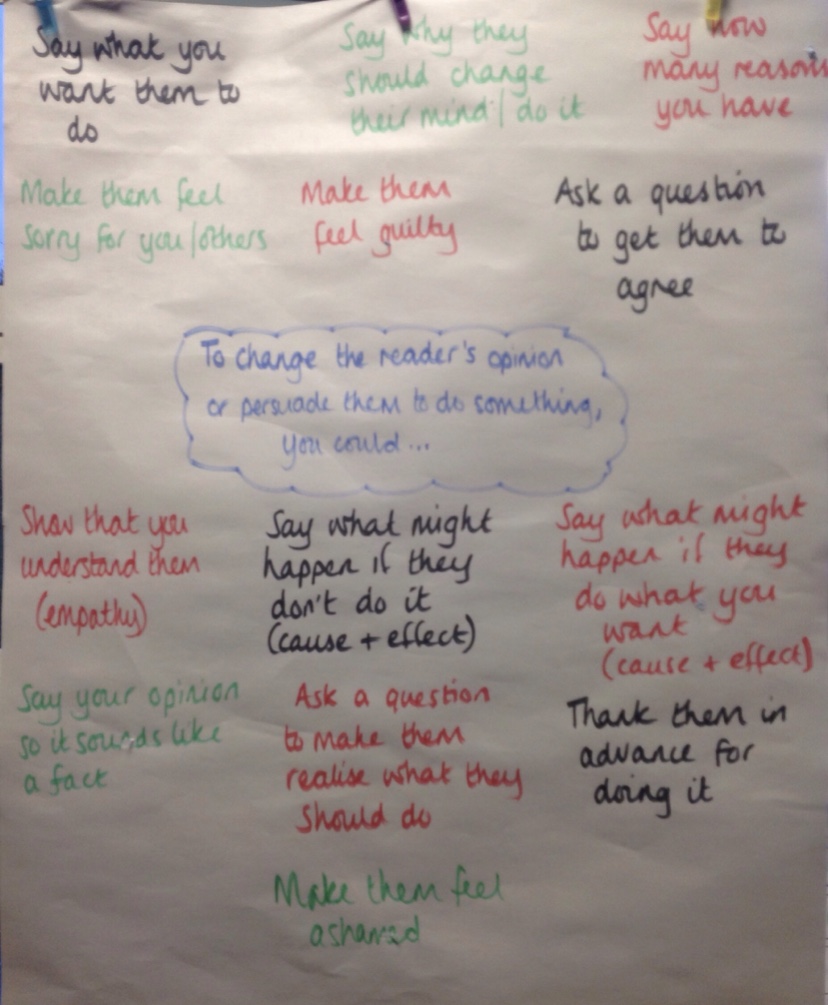 Say what you
want them to
do
Say why they
should change
their mind/do it
Say how
many reasons
you have
Make them feel
sorry for you/others
Make them
feel guilty
Ask a question
to get them to
agree
To change the reader's opinion
or persuade them to do something,
you could...
Show that you
understand them
(empathy)
Say what might
happen if they
don't do it
(cause + effect)
Say what might
happen if they
do what you
want
(cause + effect)
Say your opinion
so it sounds like
a fact
Ask a question
to make them
realise what they
should do
Thank them in
advance for
doing it
Make them feel
ashamed